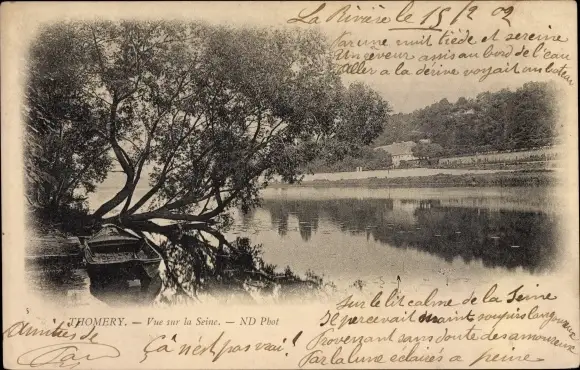 La Rivière le 15/9 02
Par une nuit tiède et sereine
Un rêveur assis au bord de l'eau
Aller a la dérive voyait un bateau
Sur le lit calme de la Seine
Il percevait maint soupirs langoureux
Provenant sans doute des amoureux
Par la lune éclairés a peine
Ça n'est pas vrai!
Amitiés
THOMERY. — Vue sur la Seine. — ND Phot